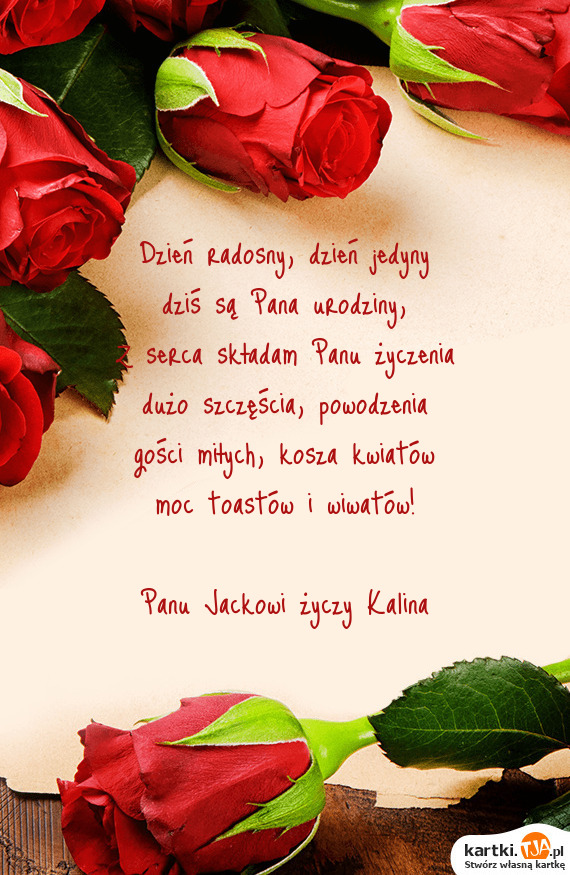 Dzień radosny, dzień jedyny
dziś są Pana urodziny,
z serca składam Panu życzenia
dużo szczęścia, powodzenia
gości miłych, kosza kwiatów
moc toastów i wiwatów!
Panu Jackowi życzy Kalina
kartki.TJA.pl
Stwórz własną kartkę